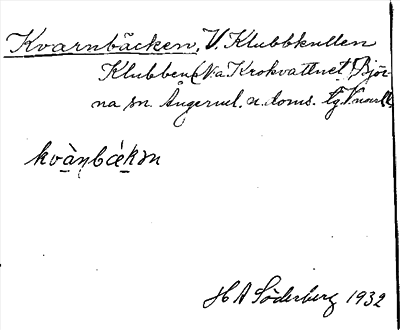 Kvarnbäcken, V. Klubbkullen
Klubben (N.a Krokvattnet) Björ-
na sn Ångerml. a. doms.
kvànbækən
H A Söderberg 1932